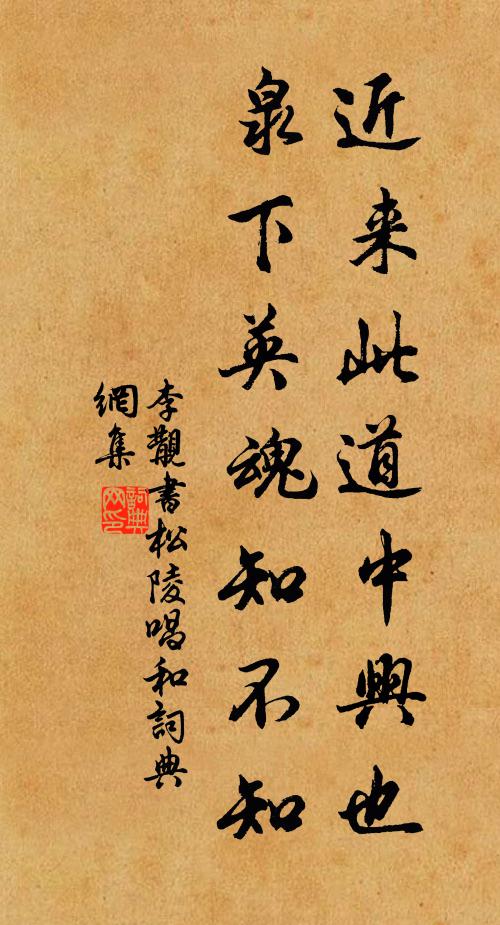 近来此道中興也
泉下英魂知不知
李觀書松陵唱和詞典
網集
詞典網印